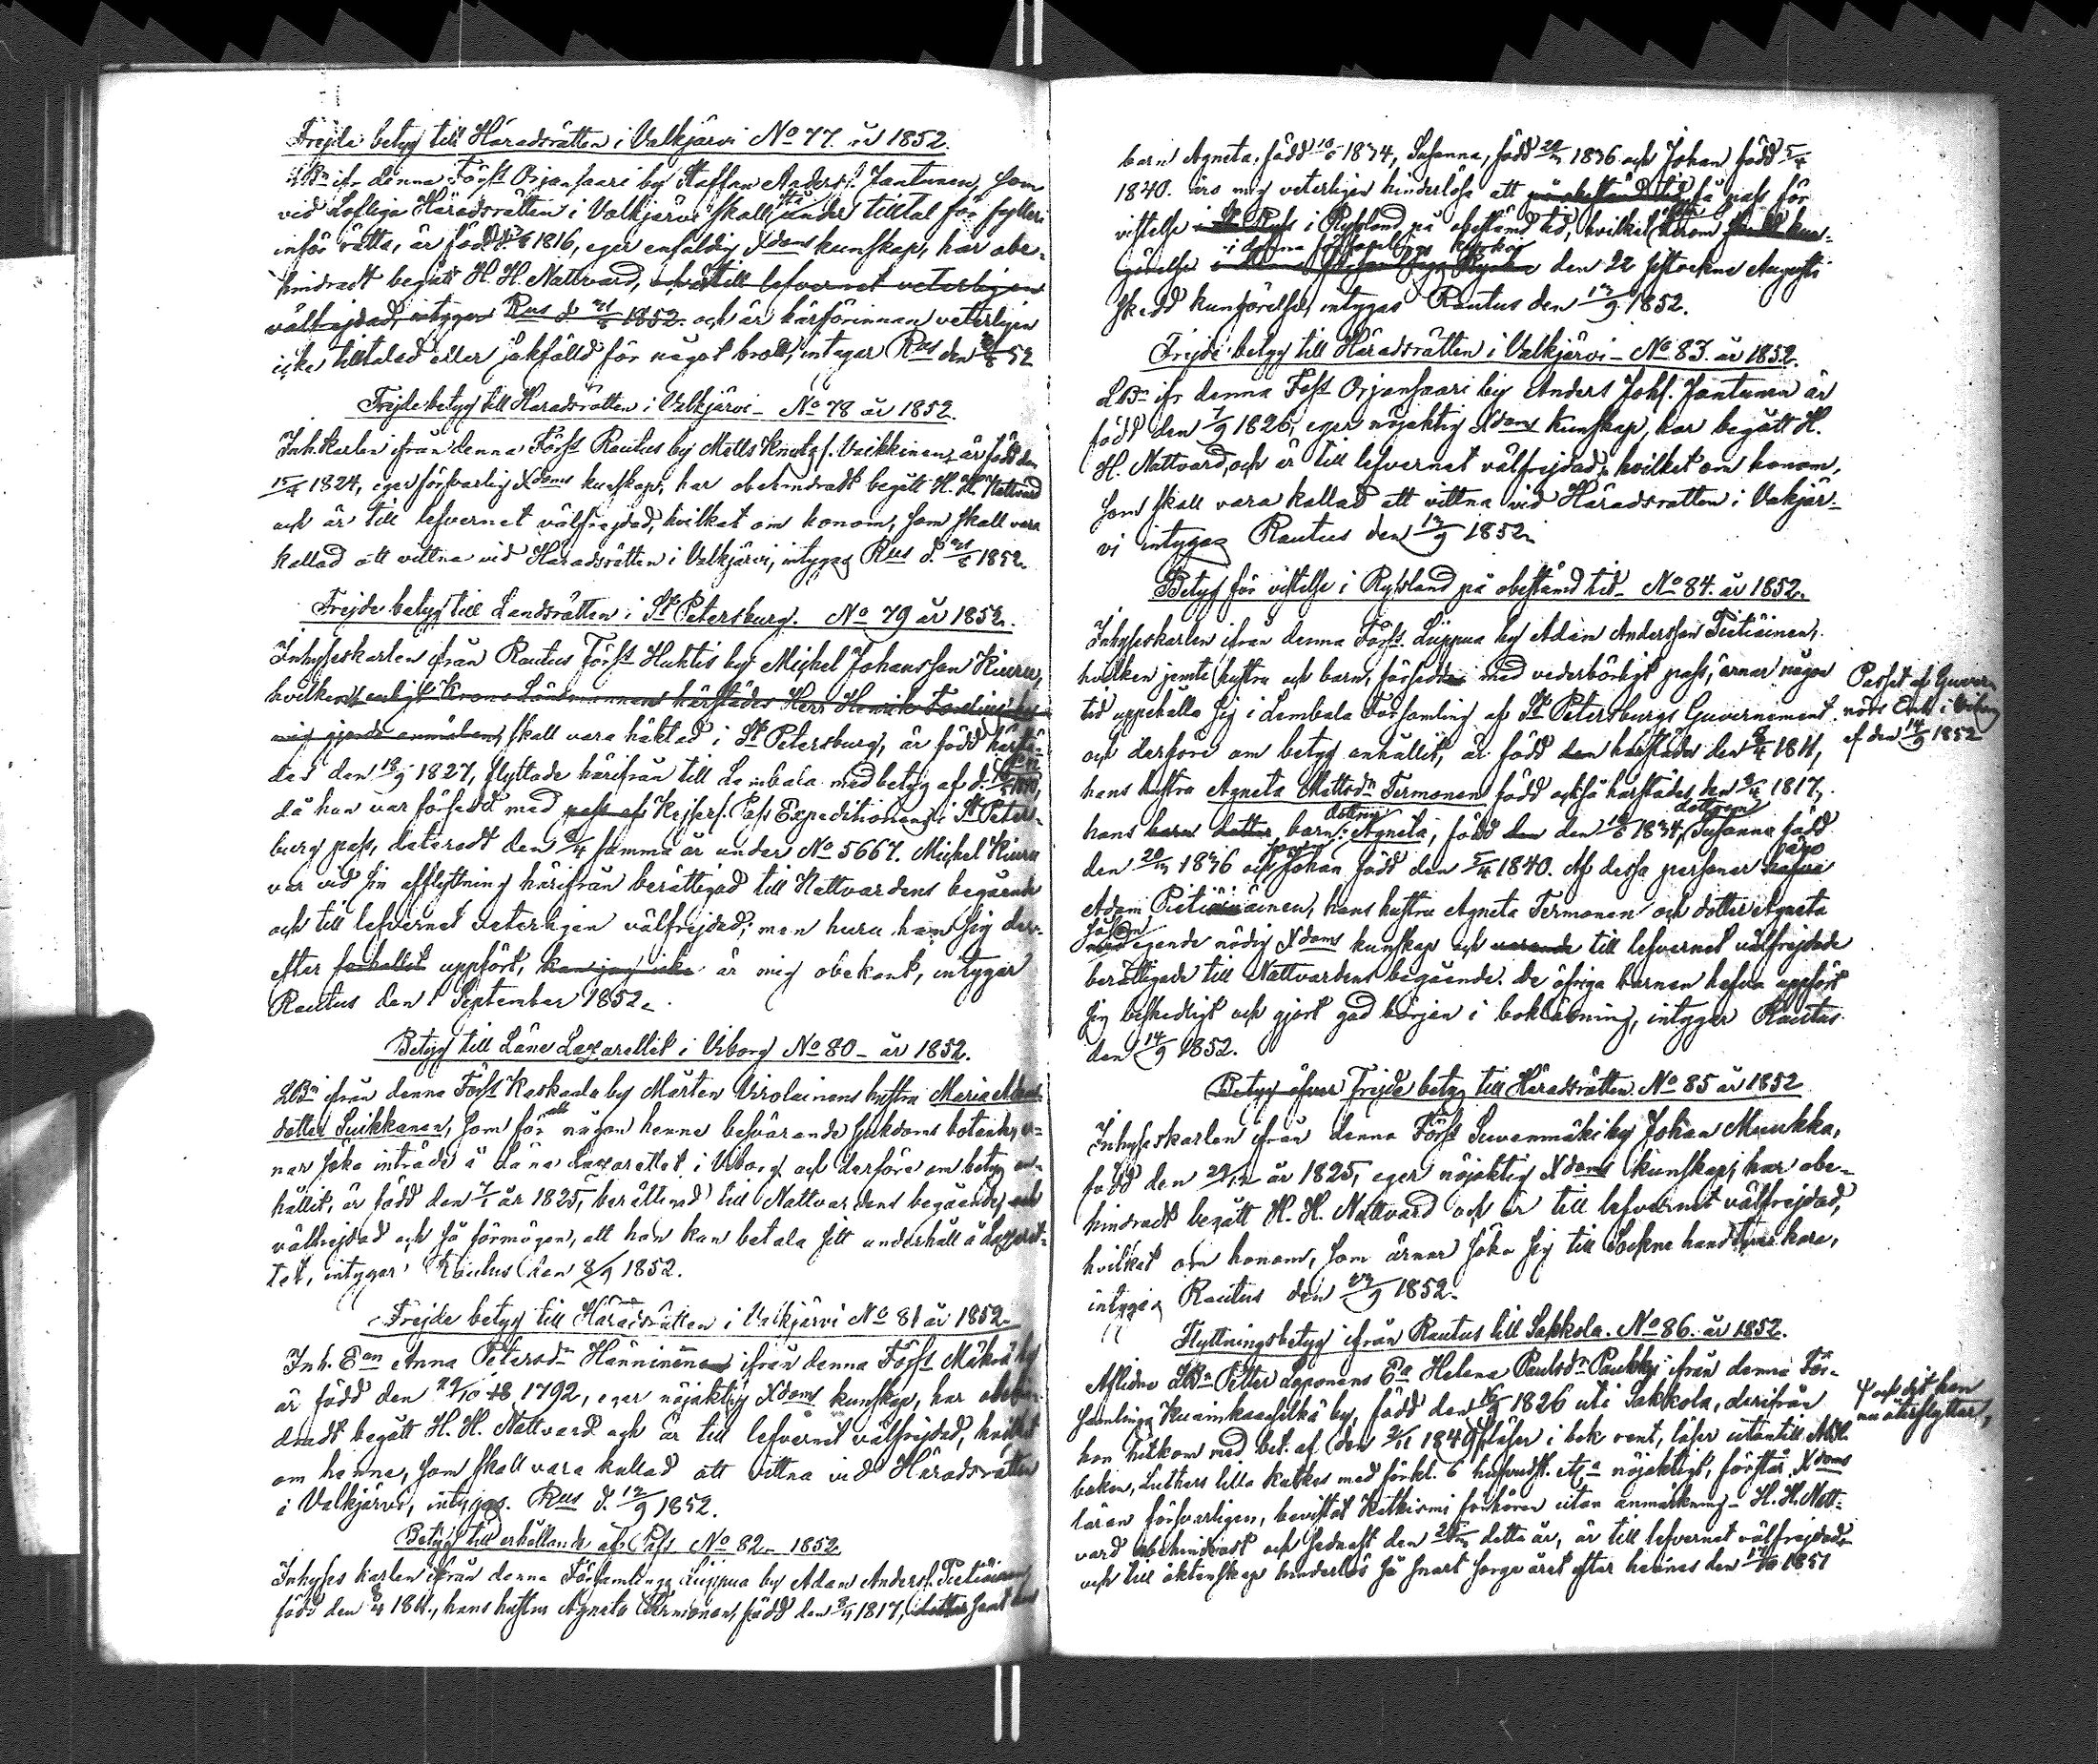 Frejde betyg till Häradsrätten i Valkjärvi No 77. år 1852.
LBn ifr denna Förs:t Orjansaari by Staffan Anders: Jantunen, som
vid Lofliga Häradsrätten i Valkjärvi skall stå under tilltal för fylleri
inför rätta, är född 1816, eger enfaldig Xdoms kunskap, har obe-
hindradt begått H. H. Nattvard, och är till lefvernet veterligen
välfrejdad, intygar Rus d 31/8 1852. och är härförinnan veterligen
icke tilltalad eller sakfälld för något brott, intygar Rus den 31/8 52
Frejde betyg till Häradsrätten i Valkjärvi – No 78 år 1852.
Inh.karlen ifrån denna Förs:t Rautus by Matts Knutss. Vaikkinen, är född den
15/4 1824, eger försvarlig Xdoms kunskap, har obehindradt begått H. H. Nattvard
och är till lefvernet välfrejdad, hvilket om honom, som skall vara
kallad att vittna vid Häradsrätten i Valkjärvi, intygas Rus d. 31/8 1852.
Frejde betyg till Landsrätten i St Petersburg. No 79 år 1852.
Inhyseskarlen ifrån Rautus Förs:t Huhtis by Michel Johansson Kiuru,
hvilken, enligt Krono Länsmannens härstädes Herr Henrik
mig gjorda anmälan, skall vara häktad i St Petersburg, är född härstä-
des den 18/9 1827, flyttade härifrån till Lembala med betyg af d.
då han var försedd med pass af Kejsers. Pass Expeditionens i St Peters-
burg pass, dateradt den 8/4 samma år under No 5667. Michel Kiuru
var vid sin afflyttning härifrån berättigad till Nattvardens begående
och till lefvernet veterligen välfrejdad; men huru han sig der-
efter förhållit uppfört, kan jag icke är mig obekant, intygar
Rautus den 1 September 1852.
Betyg till Läne Lazarettet i Viborg No 80 – år 1852.
LBn ifrån denna Förs:t Raskaala by Mårten Virolainens hustru Maria
dotter Suikkanen, som för att någon henne besvärande sjukdoms botande, är-
nar söka inträde å Läne Lazarettet i Viborg och derföre om betyg an-
hållit, är född den 7/1 år 1825, berättigad till Nattvardens begående, och
välfrejdad och så förmögen, att hon kan betala sitt underhåll å Lazaret-
tet, intygar Rautus den 8/9 1852.
Frejde betyg till Häradsrätten i Valkjärvi No 81 år 1852.
Inh. Ean Anna Petersdn Hänninen ifrån denna Förs:t Mäkrä by
är född den 29/10 1792, eger nöjaktig Xdoms kunskap, har obehin-
dradt begått H. H. Nattvard och är till lefvernet välfrejdad, hvilket
om henne, som skall vara kallad att vittna vid Häradsrätten
i Valkjärvi, intygas. Rus d. 12/9 1852.
Betyg till erhållande af Pass No 82 – 1852
Inhyses karlen ifrån denna Församlings Liippua by Adam Anderss. Pietiäinen,
född den 8/4 1811., hans hustru Agneta Termonen, född den 3/4 1817, dotter samt hans
barn Agneta, född 10/6 1834, Susanna, född 20/ 1836 och Johan född 5/4
1840. äro mig veterligen hinderlöse att på obestämd tid få pass för
vistelse i St Rys i Ryssland på obestämd tid, hvilket derom skedd kun-
görelse i denna församlings kyrka den 22 sistvekne Augusti
skedd kungörelse, intygas Rautus den 12/9. 1852.
Frejde betyg till Häradsrätten i Valkjärvi – No 83. år 1852.
LBn ifr denna Förs:t Orjansaari by Anders Johs. Jantunen är
född den 7/9 1826, eger nöjaktig Xdoms kunskap, har begått H.
H. Nattvard, och är till lefvernet välfrejdad, hvilket om honom,
som skall vara kallad att vittna vid Häradsrätten i Vakjär-
vi intygas Rautus den 12/9 1852.
Betyg för vistelse i Ryssland på obestämd tid – No 84. år 1852.
Inhyseskarlen ifrån denna Förs:t. Liippua by Adam Andersson Pietiäinen,
hvilken jemte hustru och barn, försedde med vederbörligt pass, ärnar någon
tid uppehålla sig i Lembala Församling af St Petersburgs Guvernement
och derföre om betyg anhållit, är född den härstädes den 8/4 1811,
hans hustru Agneta Mattsdn Termonen född också härstädes den 3/4 1817,
hans barn dotter, barn: dottren Agneta, född den den 10/6 1834, dottren Susanna född
den 20/ 1836 och sonen Johan född den 5/4 1840. Af dessa personer hafva äro
Adam Pietiäinen, hans hustru Agneta Termonen och dotter Agneta
såsom egande nödig Xdoms kunskap och varande till lefvernet välfrejdade
berättigade till Nattvardens begående. De öfriga barnen hafva uppfört
sig beskedligt och gjort god början i bokläsning, intygar Rautus
den 14/9 1852.
Passet af Guver-
nörs Emb. i Viborg
af den 14/9 1852
Betyg öfver Frejde betyg till Häradsrätten No 85 år 1852
Inhyseskarlen ifrån denna Förs:t Suvenmäki by Johan Muukka,
född den 29/12 år 1825, eger nöjaktig Xdoms kunskap, har obe-
hindradt begått H. H. Nattvard och är till lefvernet välfrejdad,
hvilket om honom, som ärnar söka sig till Sockne handtverkare,
intygas Rautus den 23/9 1852.
Flyttningsbetyg ifrån Rautus till Sakkola. No 86. år 1852.
Aflidne LBn Petter Loponens Ea Helena Paulsdn Paukku ifrån denna För-
samlings by, född den 16/ 1826 uti Sakkola, derifrån
hon hitkom med bet. af den 2/11 1849, läser i bok rent, läser utantill Abc
boken, Luthers lilla Katkes med förkl. 6 hufvudst. nöjaktigt, förstår Xdoms
läran försvarligen, bevistat Katkismi förhören utan anmärkning – H. H. Natt-
vard obehindradt och sednast den detta år, är till lefvernet välfrejdad
och till äktenskap hinderlös så snart sorge året efter hennes den 1851
och dit hon
nu återflyttar,